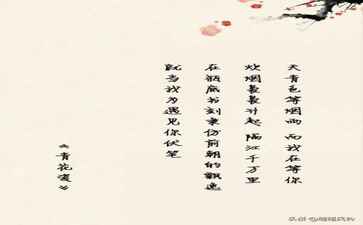 天青色等烟雨 而我在等你
炊烟袅袅升起 隔江千万里
在瓶底书刻隶仿前朝的飘逸
就当我为遇见你伏笔
《青花瓷》